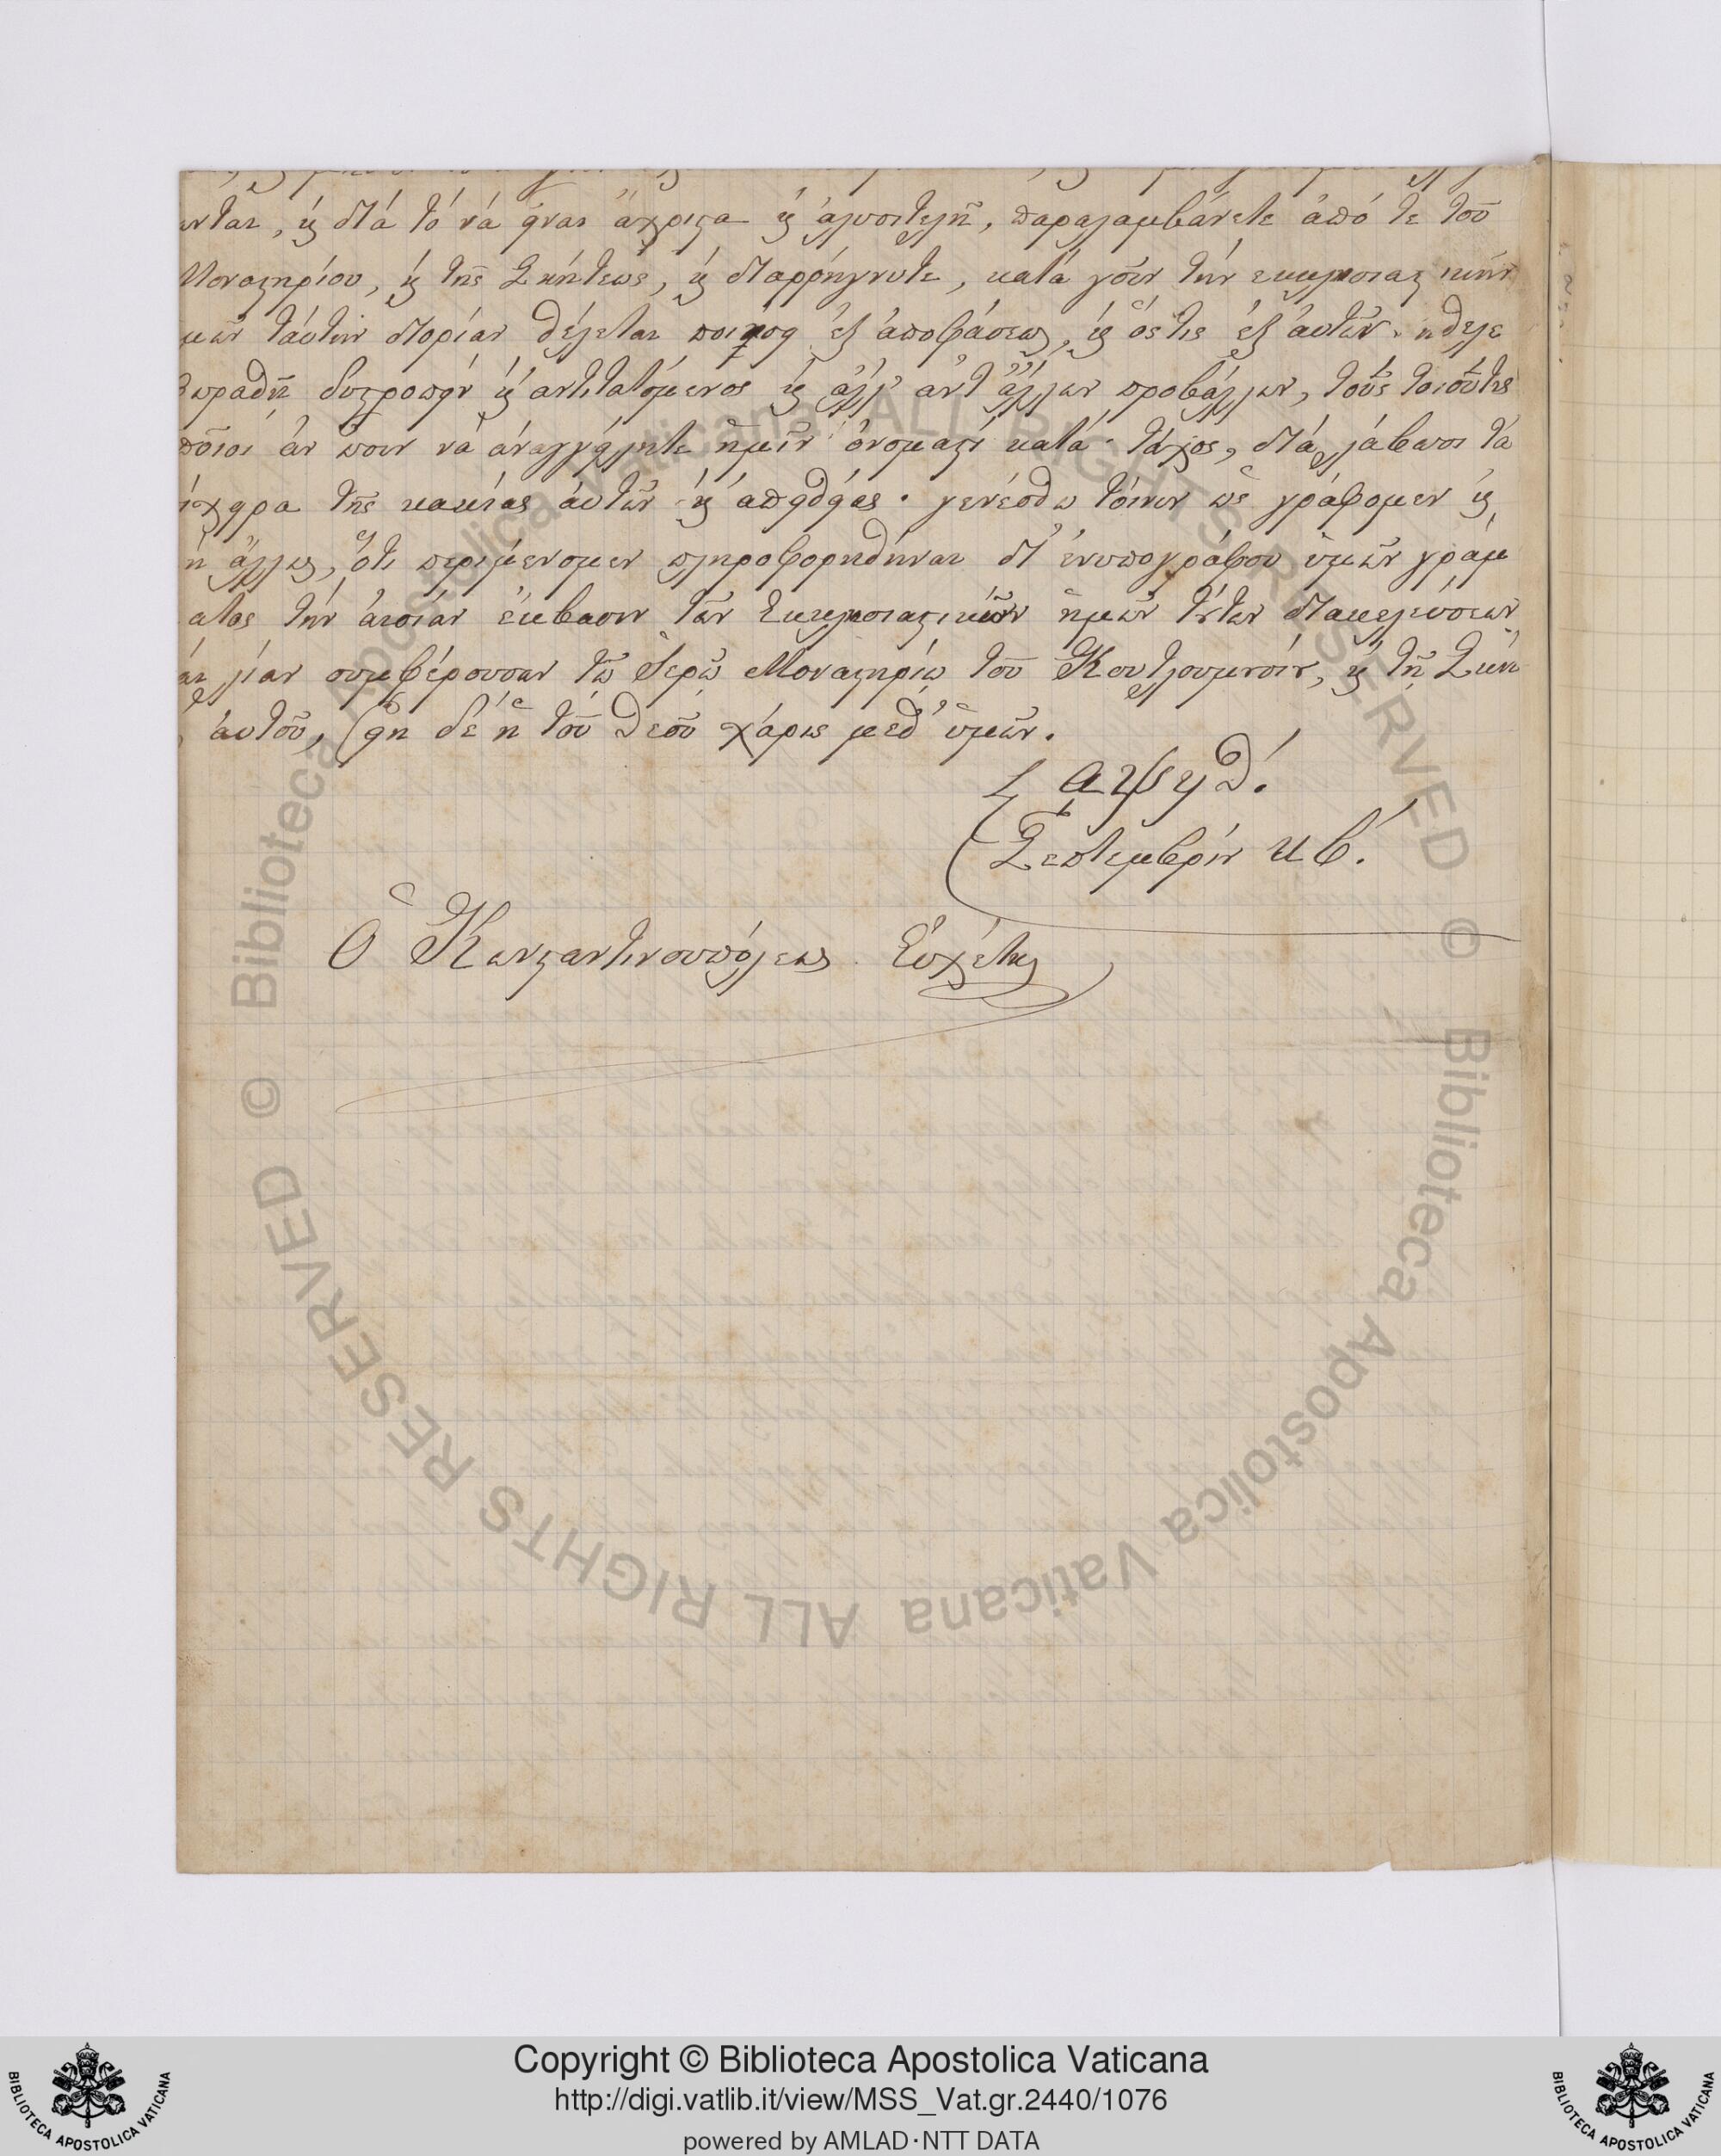 καὶ διὰ τὸ νὰ ᾖναι ἄχρηστα καὶ ἀλυσιτελῆ, παραλαμβάνετε ἀπό τε τοῦ
Μοναστηρίου, καὶ τῆς Σκήτεως, καὶ διαῤῥήγνυτε, κατὰ γοῦν τὴν ἐκκλησιαστικὴν
ταύτην θέλεται ποιήσει ἐξ ἀποφάσεως, καὶ ὅστις ἐξ αὐτῶν ἤθελε
δυστροπῶν καὶ ἀντιτατόμενος καὶ ἀλλ' ἀντ' ἄλλων προβάλλων, τοὺς τοιούτους
ἂν ὦσιν νὰ ἀναγγείλητε ἡμῖν ὀνομαστὶ κατὰ τάχος, διὰ λάβωσι τὰ
ἐπίχειρα τῆς κακίας αὐτῶν καὶ ἀπειθείας. γενέσθω τοίνυν ὡς γράφομεν καὶ
μὴ ἄλλως, ὅτι περιμένομεν πληροφορηθῆναι δι' ἐνυπογράφου ὑμῶν γράμ
ματος τὴν αἰσίαν ἔκβασιν τῶν Ἐκκλησιαστικῶν ἡμῶν τούτων διακελεύσεων
λίαν συμφέρουσαν τῷ Ἱερῷ Μοναστηρίῳ τοῦ Κουτλουμουσίου, καὶ τῇ Σκή
αὐτοῦ, εἴη δὲ ἡ τοῦ Θεοῦ χάρις μεθ' ὑμῶν.
αψηθ.
Σεπτεμβρίου κβ.
Ὁ Κωνσταντινουπόλεως Εὐχέτης
© Biblioteca Apostolica Vaticana ALL RIGHTS RESERVED © Biblioteca Apostolica Vaticana ALL RIGHTS RESERVED
Copyright © Biblioteca Apostolica Vaticana
http://digi.vatlib.it/view/MSS_Vat.gr.2440/1076
powered by AMLAD·NTT DATA
BIBLIOTECA APOSTOLICA VATICANA
BIBLIOTECA APOSTOLICA VATICANA